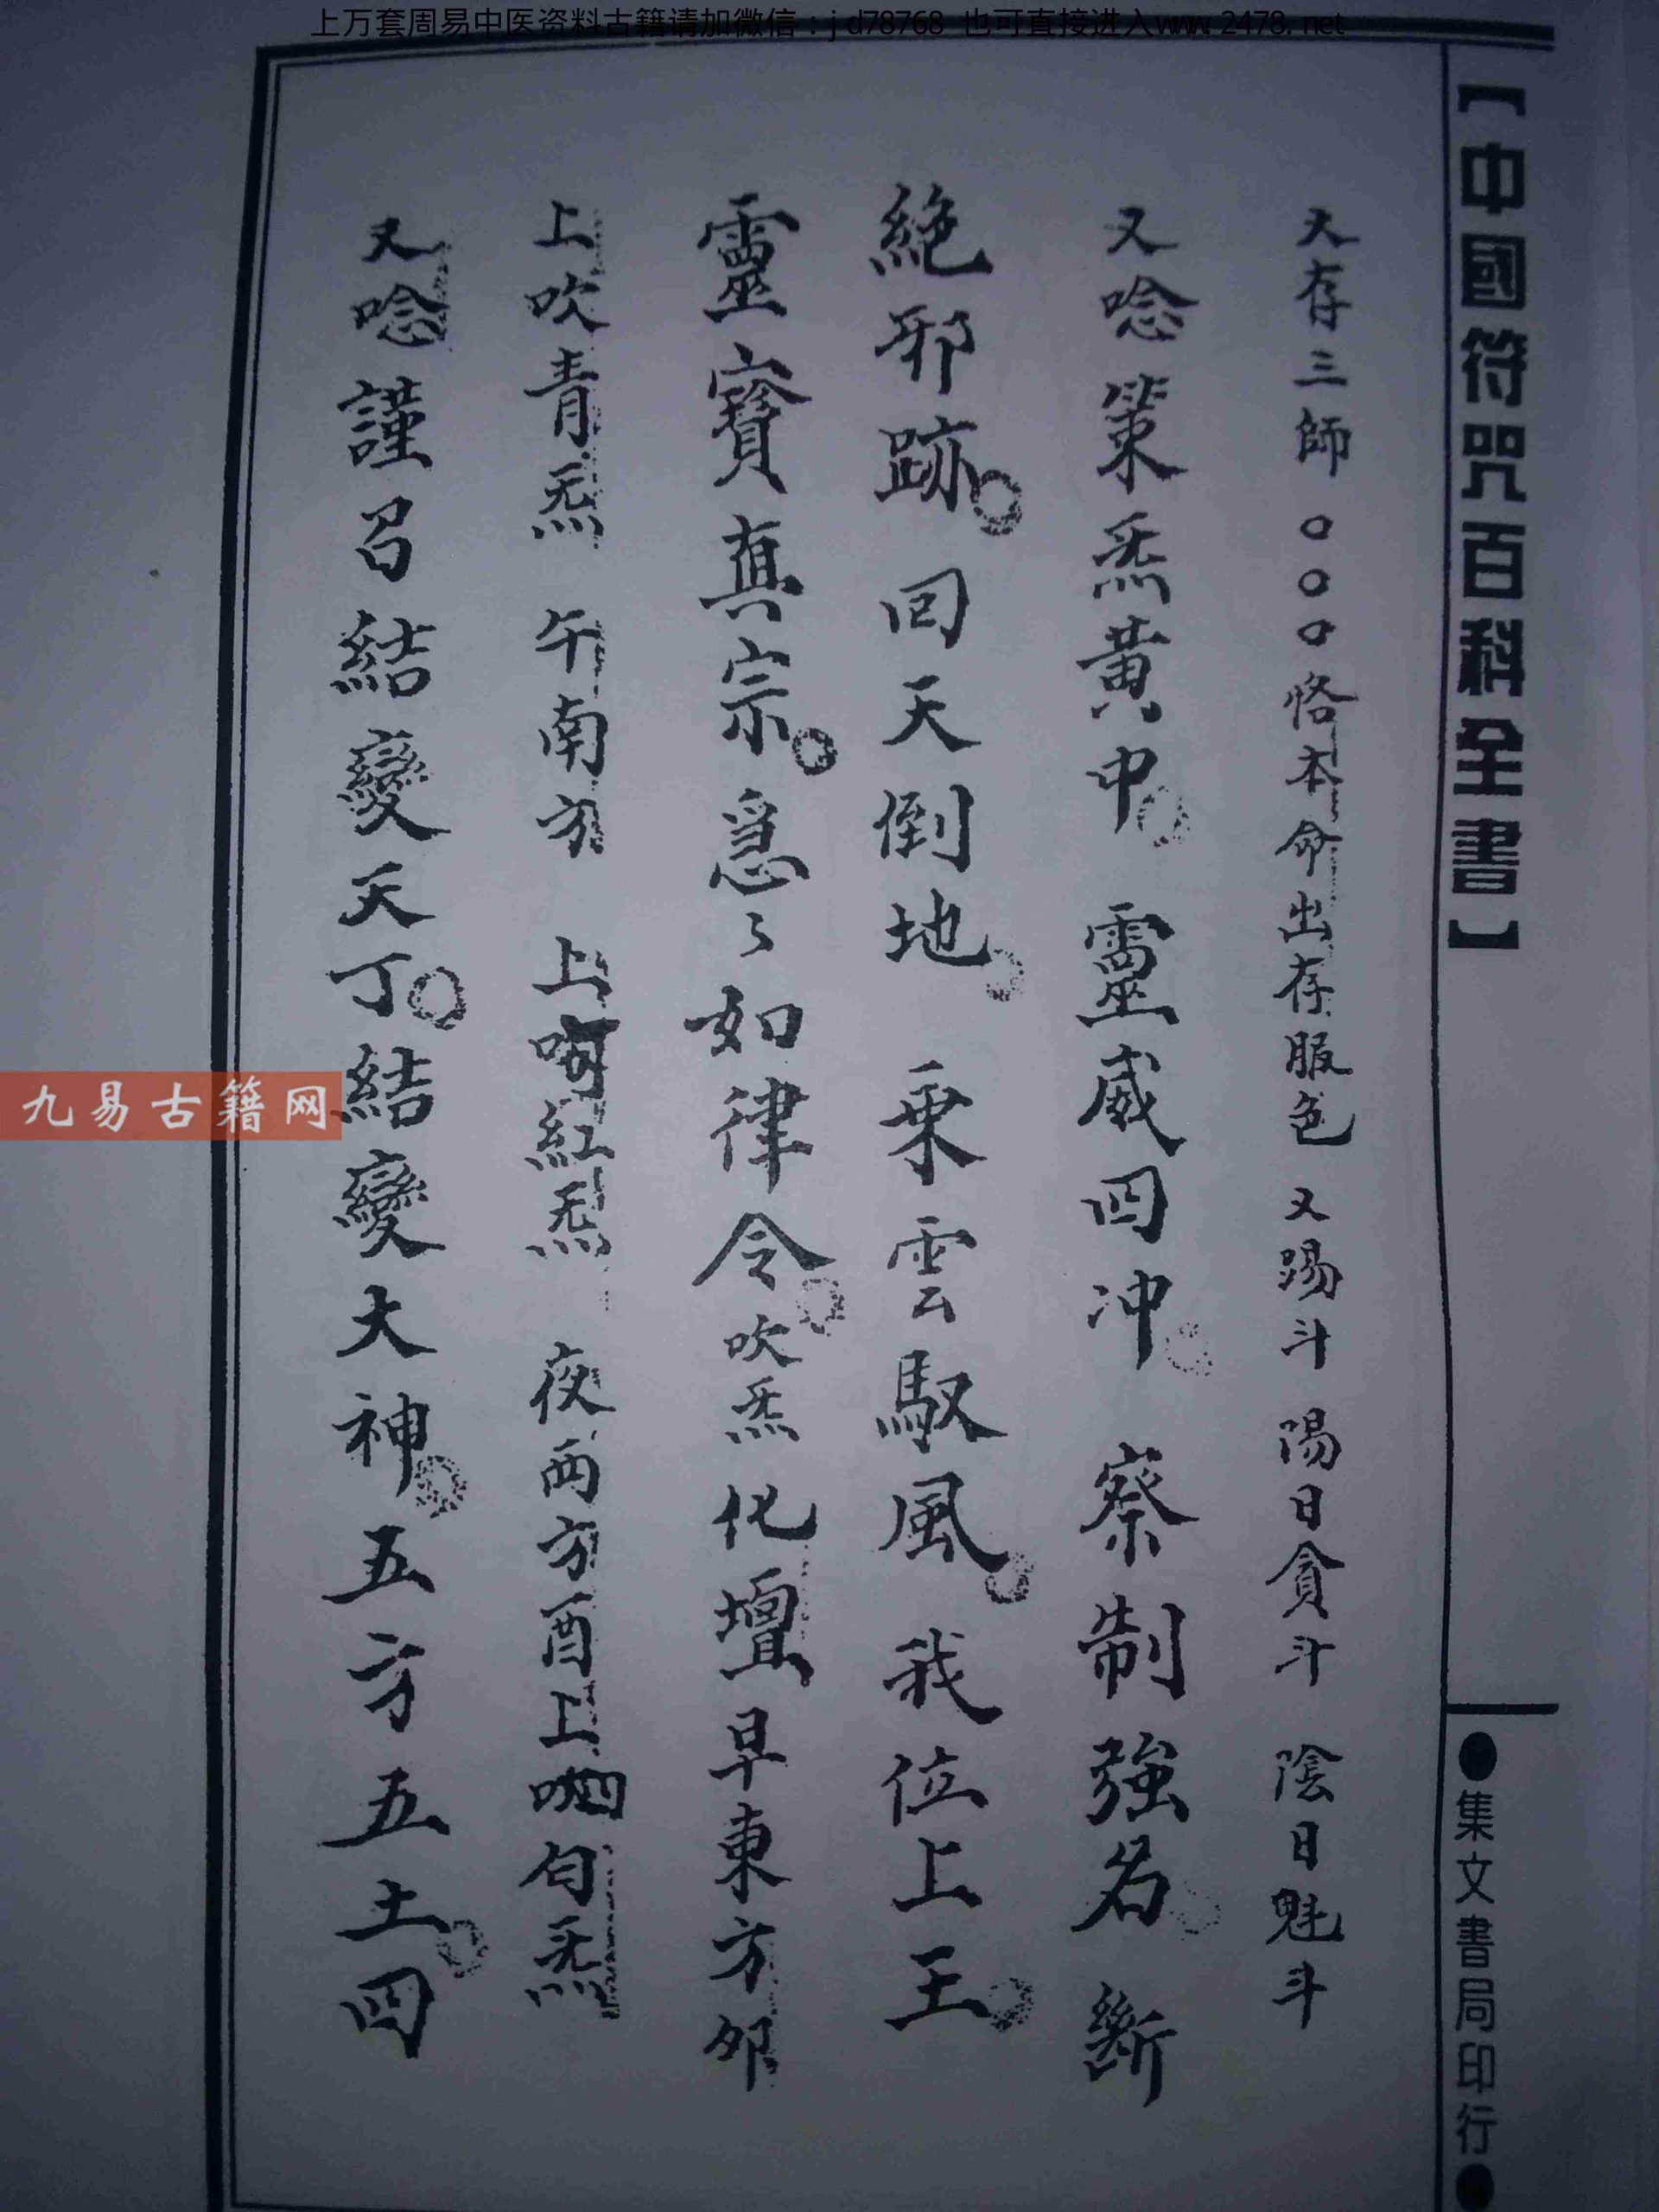 上万套周易中医资料古籍请加微信：jd78768 也可直接进入www.2478.net
【中國符咒百科全書】
●集文書局印行●
又存三師○○○恪本命出存服色 又踢斗 陽日貪斗 陰日魁斗
又唸策炁黃中。靈威四冲。察制強名。斷
絕邪跡。回天倒地。乗雲馭風。我位上王。
靈寳真宗。急々如律令。吹炁化壇早東方卯
上吹青炁 午南方 上呵紅炁 夜西方酉上呬白炁
又唸謹召結變天丁。結變大神。五方五土。四
九易古籍网